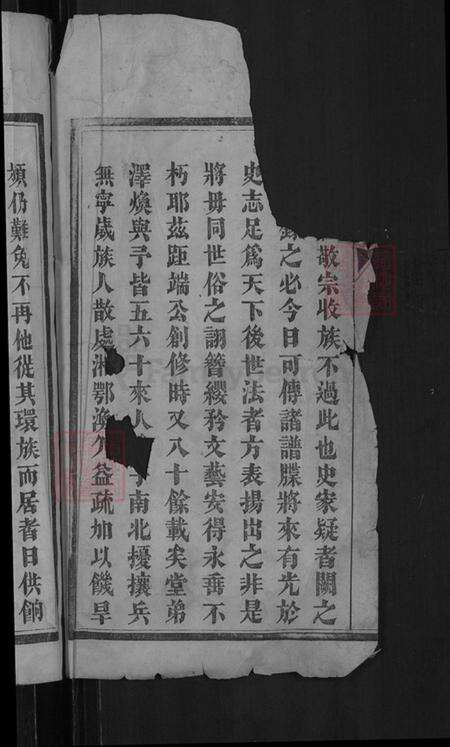 敬宗收族不過此也史家疑者闕之
之必今日可傳諸譜牒將來有光於
史志足爲天下後世法者方表揚出之非是
將毋同世俗之詡簪纓矜文藝安得永垂不
朽耶茲距端公創修時又八十餘載矣堂弟
澤煥與予皆五六十來人 南北擾攘兵
無寧歲族人散處湘鄂 益疏加以饑旱
頻仍難免不再他徙其環族而居者日供餉